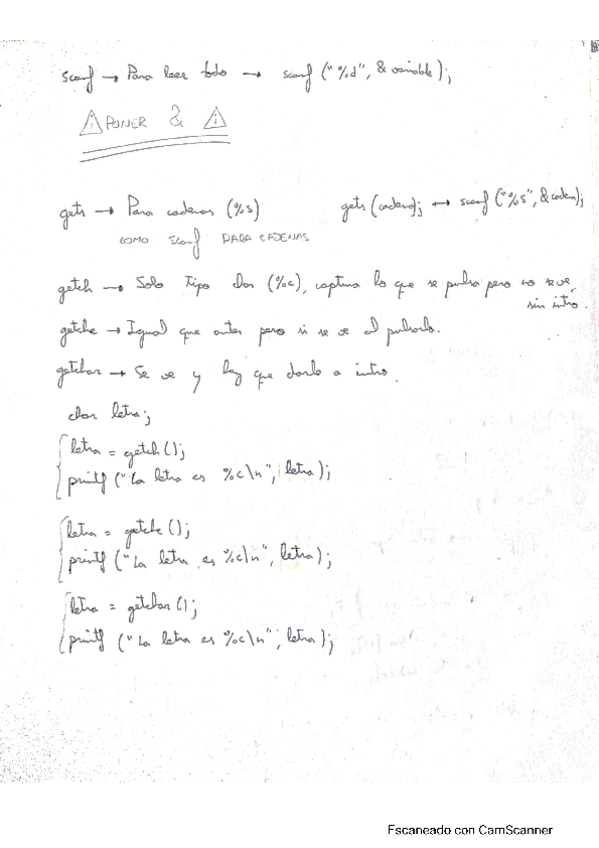 scanf → Para leer todo → scanf ("%d", & variable);
⚠ PONER & ⚠
gets → Para cadenas (%s) gets (cadena); ↔ scanf ("%s", &cadena);
COMO scanf PARA CADENAS
getch → Solo tipo char (%c), captura lo que se pulsa pero no se ve,
sin intro.
getche → Igual que antes pero si se ve al pulsarlo.
getchar → Se ve y hay que darle a intro.
char letra;
letra = getch ();
printf ("La letra es %c\n", letra);
letra = getche ();
printf ("La letra es %c\n", letra);
letra = getchar ();
printf ("La letra es %c\n", letra);
Escaneado con CamScanner